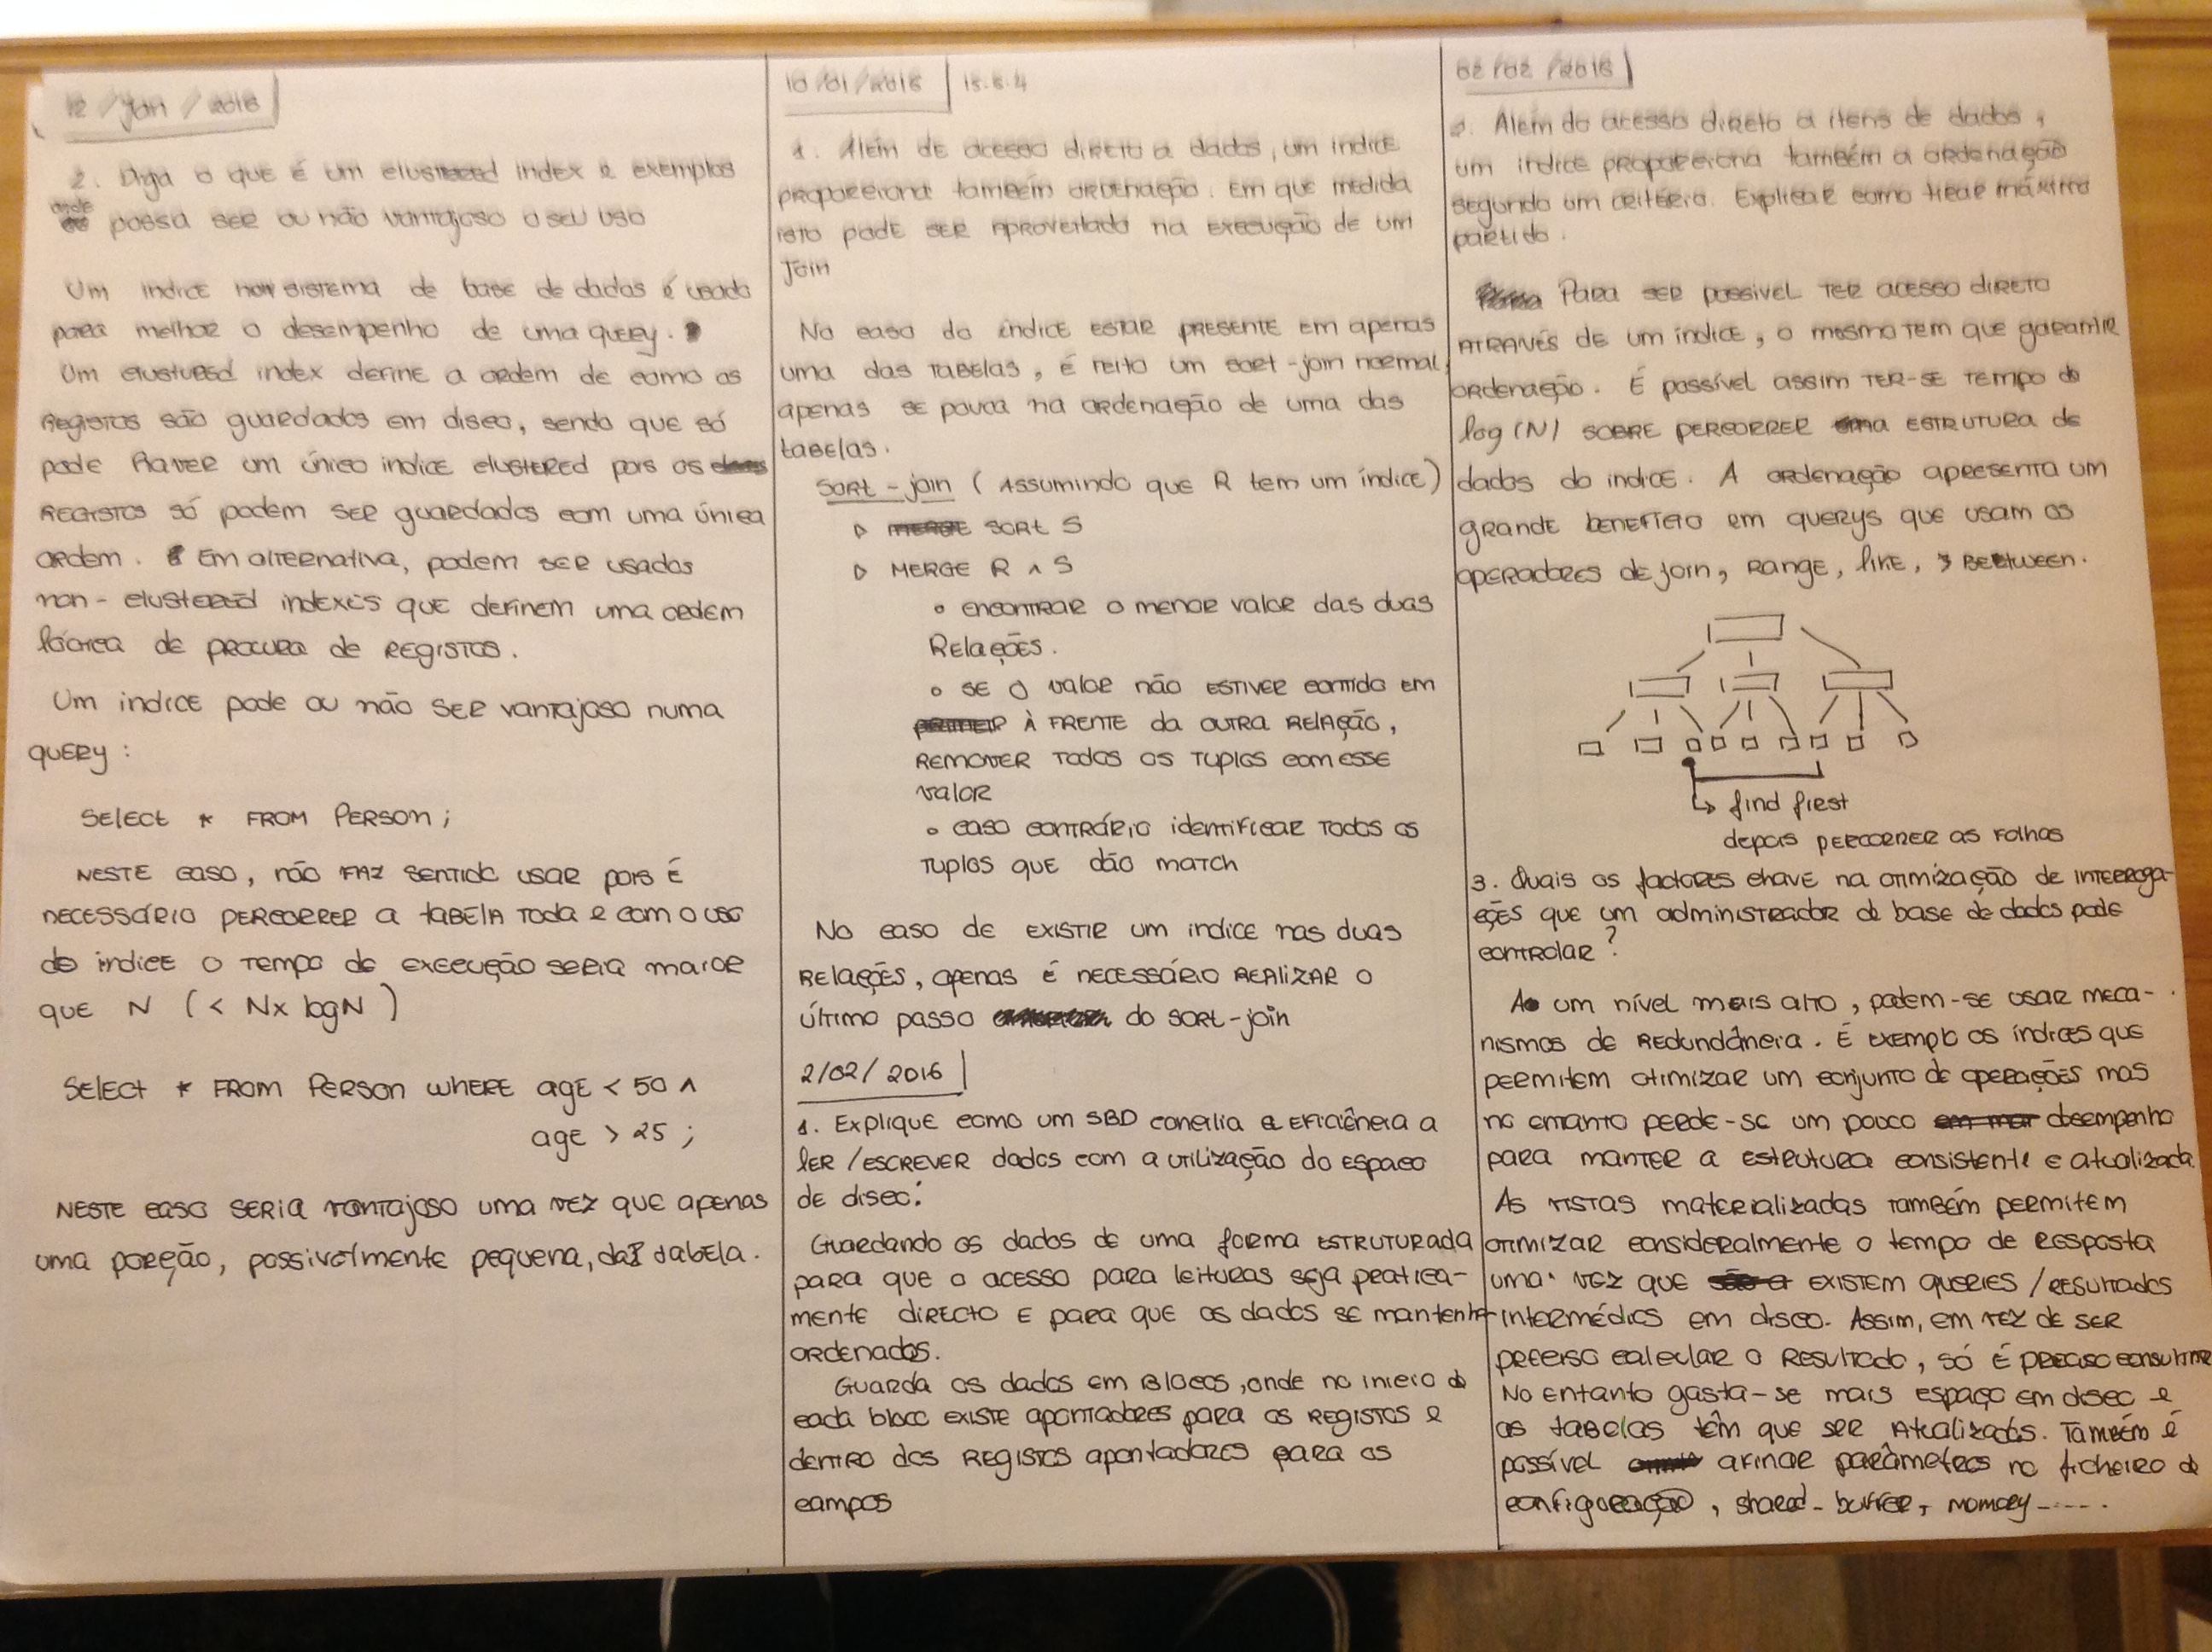 12 / Jan / 2016
2. Diga o que é um clustered index e exemplos
onde possa ser ou não vantajoso o seu uso
Um indice num sistema de base de dados é usado
para melhor o desempenho de uma query.
Um clustured index define a ordem de como os
registos são guardados em disco, sendo que só
pode haver um único indice clustered pois os
registos só podem ser guardados com uma única
ordem. Em alternativa, podem ser usados
non-clustered indexes que definem uma ordem
lógica de procura de registos.
Um indice pode ou não ser vantajoso numa
query :
Select * FROM Person ;
Neste caso, não faz sentido usar pois é
necessário percorrer a tabela toda e com o uso
do indice o tempo de execução seria maior
que N ( < N x log N )
Select * FROM Person WHERE age < 50 ^
age > 25 ;
Neste caso seria vantajoso uma vez que apenas
uma porção, possivelmente pequena, da tabela.
10/01/2016 15.8.4
1. Além de acesso direto a dados, um indice
proporciona também ordenação. Em que medida
isto pode ser aproveitado na execução de um
Join
No caso do índice estar presente em apenas
uma das tabelas, é feito um sort-join normal,
apenas se poupa na ordenação de uma das
tabelas.
Sort-join ( Assumindo que R tem um índice )
▷ MERGE SORT S
▷ MERGE R ^ S
• encontrar o menor valor das duas
Relações.
• se o valor não estiver contido em
à frente da outra relação,
remover todos os tuplos com esse
valor
• caso contrário identificar todos os
tuplos que dão match
No caso de existir um indice nas duas
relações, apenas é necessário realizar o
último passo do sort-join
2/02/2016
1. Explique como um SBD concilia a eficiência a
ler/escrever dados com a utilização do espaço
de disco:
Guardando os dados de uma forma estruturada
para que o acesso para leituras seja pratica-
mente directo e para que os dados se mantenha
ordenados.
Guarda os dados em blocos, onde no inicio de
cada bloco existe apontadores para os registos e
dentro dos registos apontadores para os
campos
02/02/2016
1. Além do acesso direto a itens de dados,
um indice proporciona também a ordenação
segundo um critério. Explicar como tirar máximo
partido.
Para ser possivel ter acesso direto
através de um índice, o mesmo tem que garantir
ordenação. É possível assim ter-se tempo de
log(N) sobre percorrer uma estrutura de
dados do indice. A ordenação apresenta um
grande beneficio em querys que usam os
operadores de join, range, like, Between.
↳ find first
depois percorrer as folhas
3. Quais os factores chave na otimização de interroga-
ções que um administrador de base de dados pode
controlar?
A um nível mais alto, podem-se usar meca-
nismos de redundância. É exemplo os índices que
permitem otimizar um conjunto de operações mas
no entanto perde-se um pouco desempenho
para manter a estrutura consistente e atualizada
As vistas materializadas também permitem
otimizar consideralmente o tempo de resposta
uma vez que existem queries/resultados
intermédios em disco. Assim, em vez de ser
preciso calcular o resultado, só é preciso consultar
No entanto gasta-se mais espaço em disco e
as tabelas têm que ser atualizadas. Também é
possível afinar parâmetros no ficheiro de
configuração, shared_buffer, memory-----.